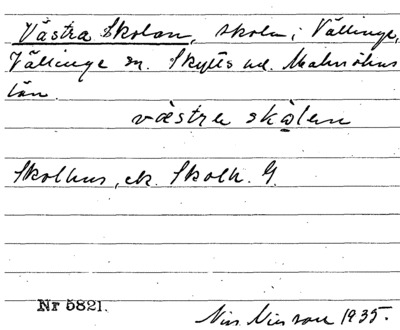 Västra Skolan, skola i Vällinge,
Vällinge sn. Skytts hd. Malmöhus
län.
västra skolan
Skolhus, ek. Skolh. G.
Nr 5821.
Nils Nilsson 1935.